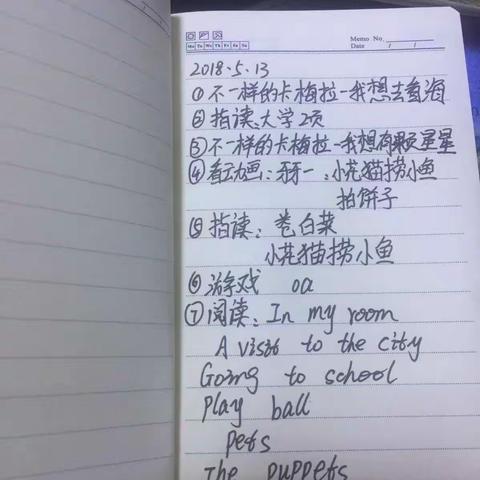 Memo No.
Mo Tu We Th Fr Sa Su
Date / /
2018.5.13
①不一样的卡梅拉-我想去看海
②指读:大学2页
③不一样的卡梅拉-我想有颗星星
④看动画:牙牙一:小花猫捞小鱼
拍饼子
⑤指读:卷白菜
小花猫捞小鱼
⑥游戏 oa
⑦阅读:In my room
A visit to the city
Going to school
Play ball
pets
The puppets